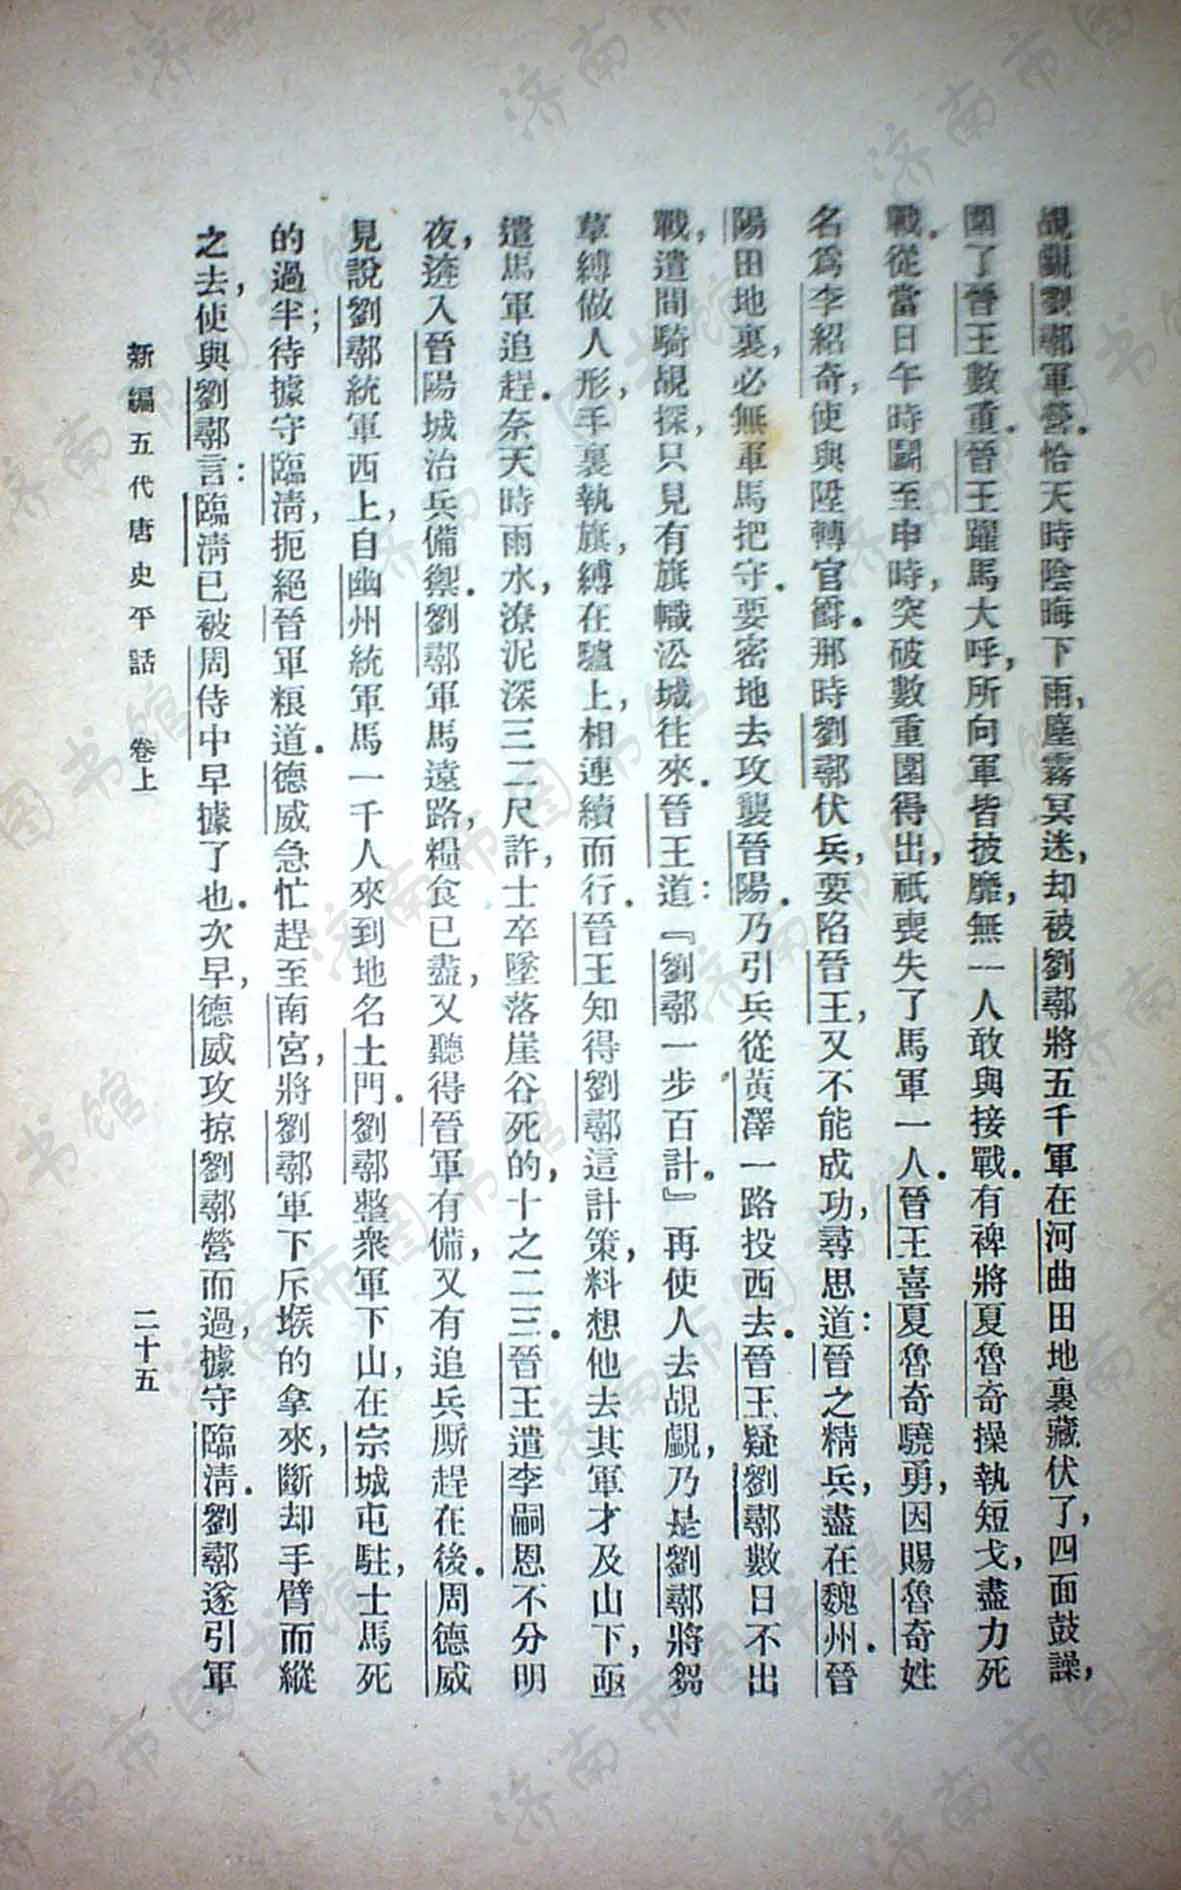 覘覷劉鄩軍營。恰天時陰晦下雨，塵霧冥迷，却被劉鄩將五千軍在河曲田地裏藏伏了，四面鼓譟，
圍了晉王數重。晉王躍馬大呼，所向軍皆披靡，無一人敢與接戰。有裨將夏魯奇操執短戈，盡力死
戰。從當日午時鬭至申時，突破數重圍得出，祇喪失了馬軍一人。晉王喜夏魯奇驍勇，因賜魯奇姓
名爲李紹奇，使與陞轉官爵。那時劉鄩伏兵，要陷晉王，又不能成功，尋思道：晉之精兵，盡在魏州。晉
陽田地裏，必無軍馬把守。要密地去攻襲晉陽。乃引兵從黃澤一路投西去。晉王疑劉鄩數日不出
戰，遣間騎覘探，只見有旗幟沿城往來。晉王道：『劉鄩一步百計。』再使人去覘覷，乃是劉鄩將芻
草縛做人形，手裏執旗，縛在驢上，相連續而行。晉王知得劉鄩這計策，料想他去其軍才及山下，亟
遣馬軍追趕。奈天時雨水，潦泥深三二尺許，士卒墜落崖谷死的，十之二三。晉王遣李嗣恩不分明
夜，遶入晉陽城治兵備禦。劉鄩軍馬遠路，糧食已盡，又聽得晉軍有備，又有追兵厮趕在後。周德威
見說劉鄩統軍西上，自幽州統軍馬一千人來到地名土門。劉鄩整衆軍下山，在宗城屯駐，士馬死
的過半；待據守臨淸，扼絕晉軍粮道。德威急忙趕至南宮，將劉鄩軍下斥堠的拿來，斷却手臂而縱
之去，使與劉鄩言：臨淸已被周侍中早據了也。次早，德威攻掠劉鄩營而過，據守臨淸。劉鄩遂引軍
新編五代唐史平話 卷上 二十五
济南市图书馆